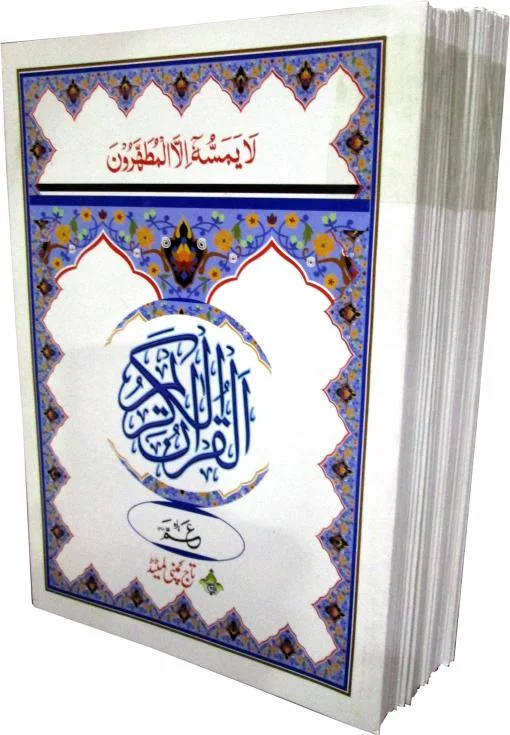 لَا يَمَسُّهٗٓ اِلَّا الْمُطَهَّرُوْنَ
اَلْقُرْاٰنُ الْكَرِيْمُ
پارہ عَمَّ
تاج کمپنی لمیٹڈ